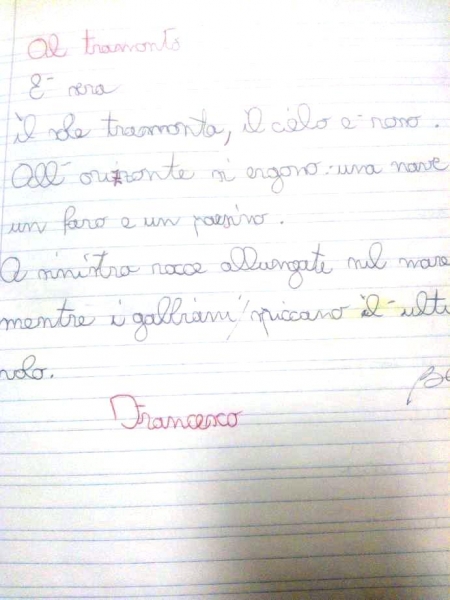 Al tramonto
E' sera
il sole tramonta, il cielo e' roso.
All' orizzonte si ergono: una nave
un faro e un paesino.
A sinistra rocce allungate nel mare
mentre i gabbiani spiccano il' ulti
volo.
Francesco